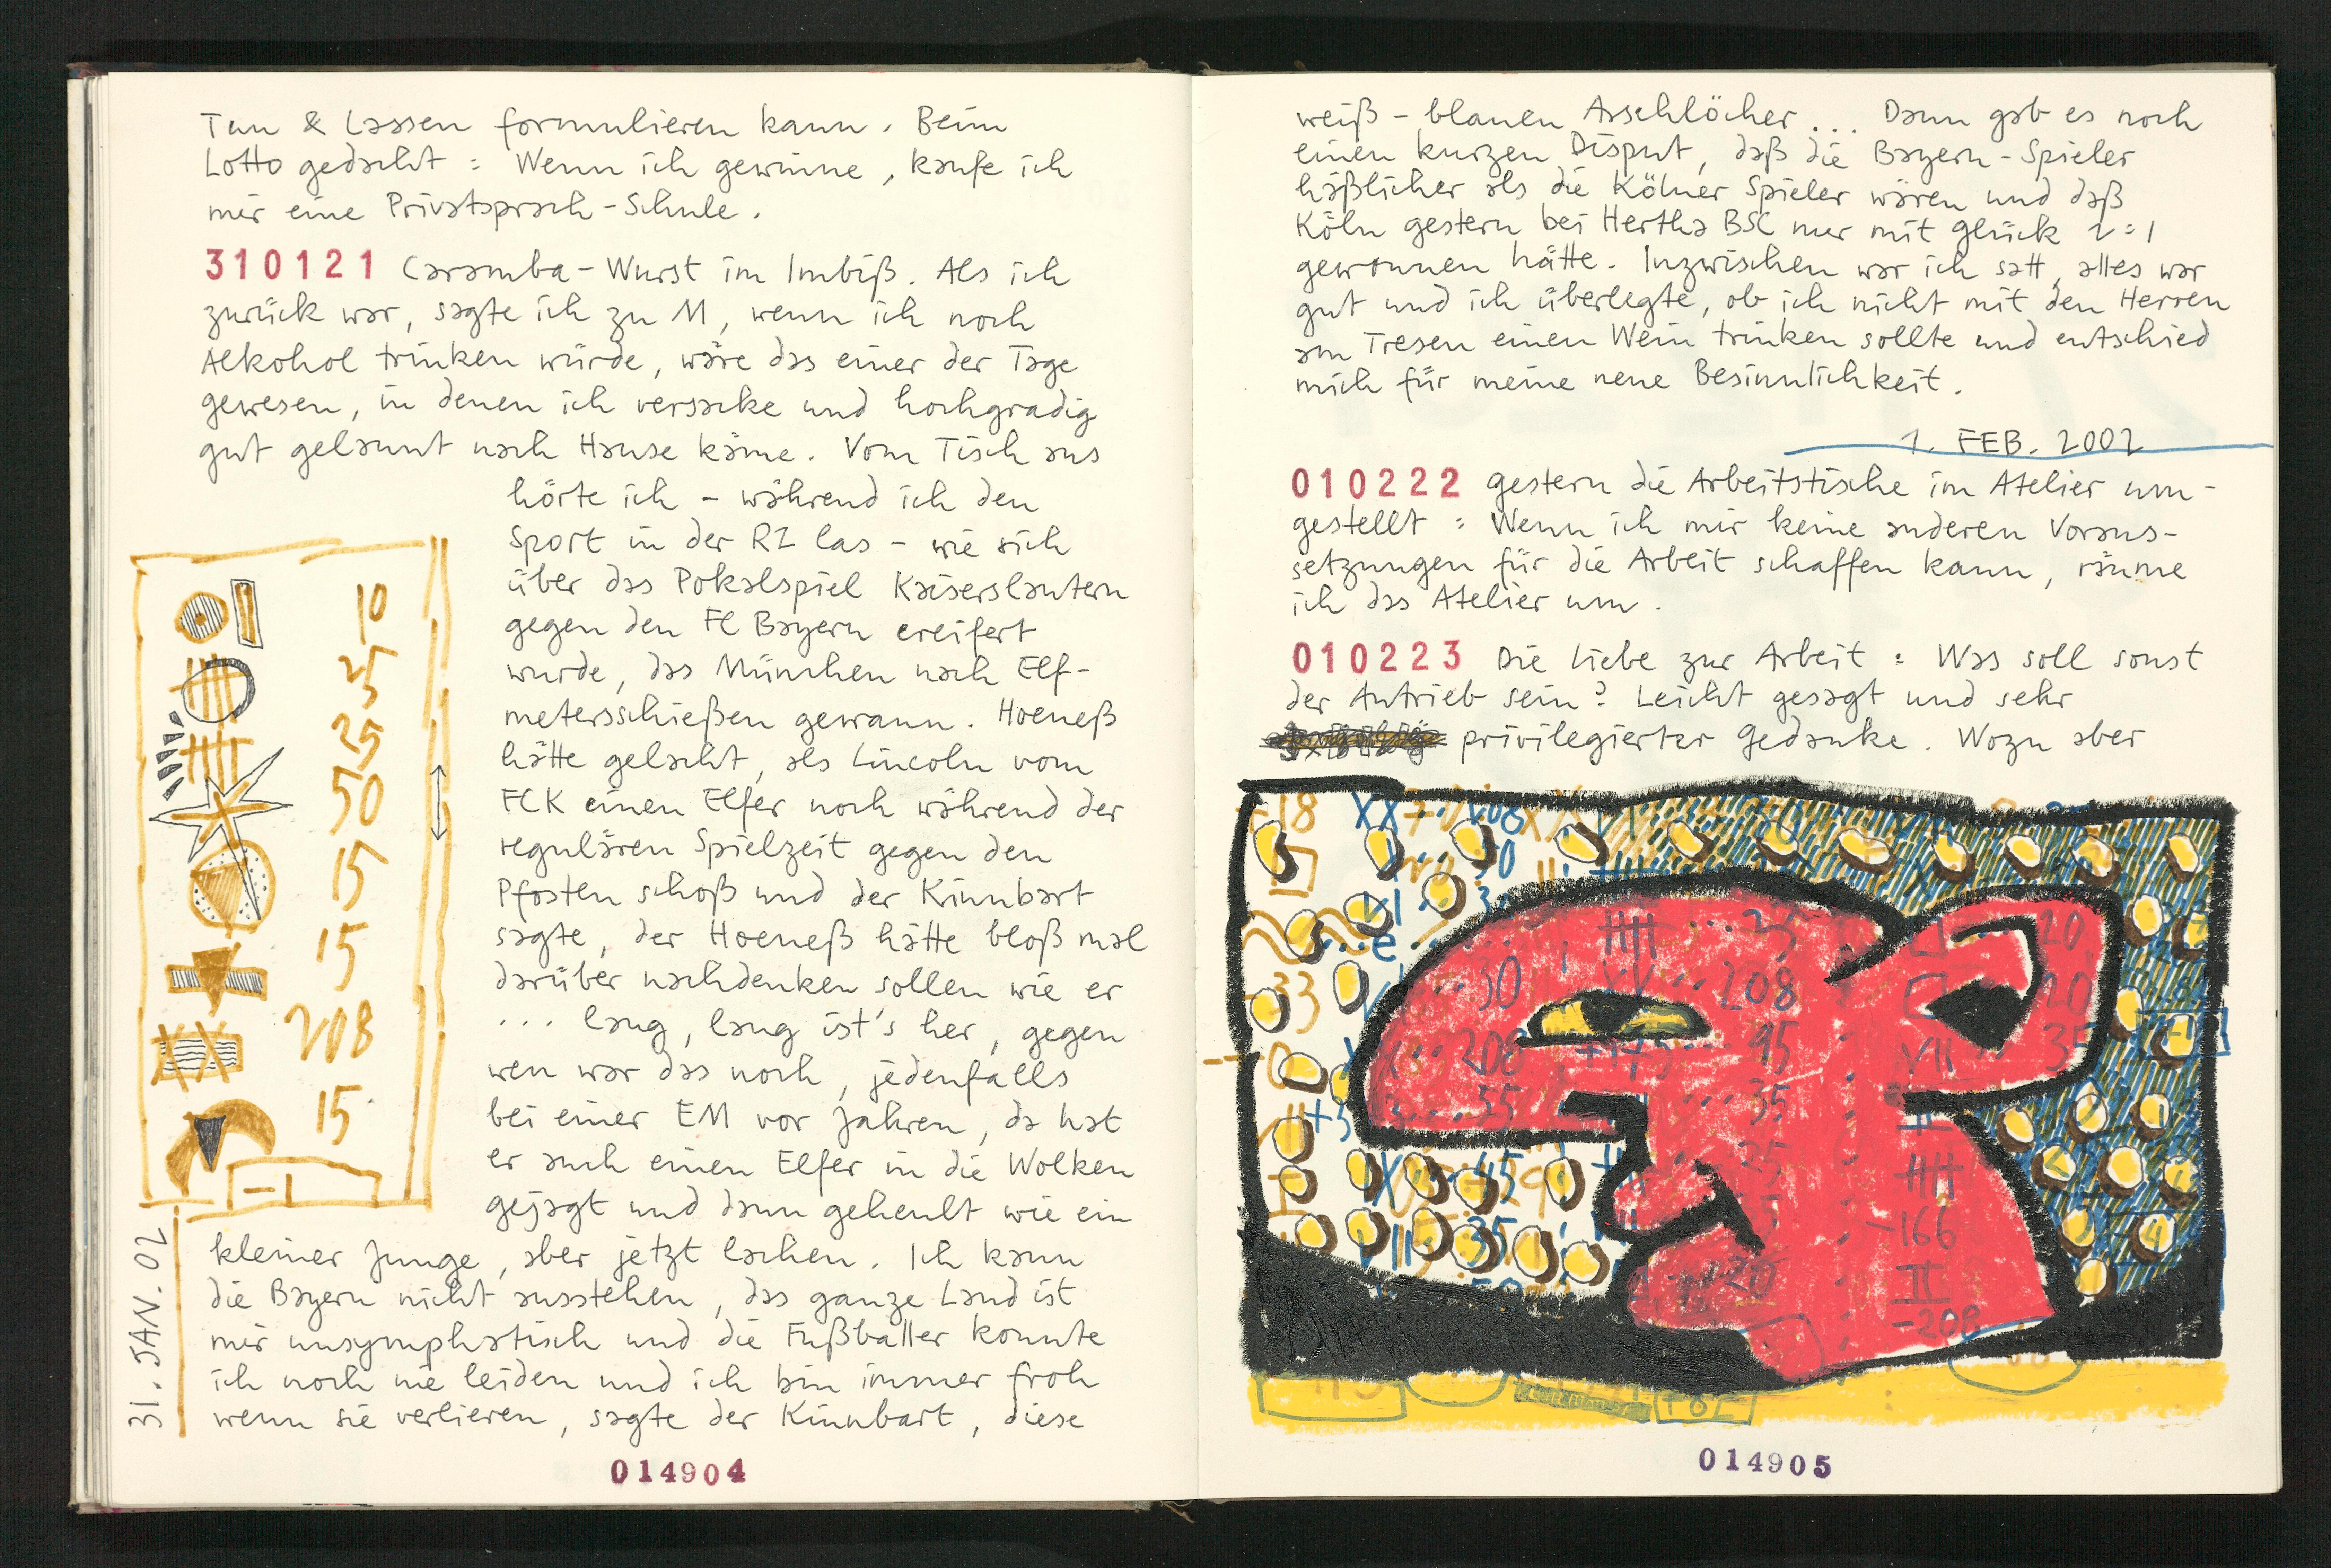 Tun & Lassen formulieren kann. Beim
Lotto gedacht: Wenn ich gewinne, kaufe ich
mir eine Privatsprach-Schule.
310121 Caramba-Wurst im Imbiß. Als ich
zurück war, sagte ich zu M, wenn ich noch
Alkohol trinken würde, wäre das einer der Tage
gewesen, in denen ich versacke und hochgradig
gut gelaunt nach Hause käme. Vom Tisch aus
hörte ich – während ich den
Sport in der RZ las – wie sich
über das Pokalspiel Kaiserslautern
gegen den FC Bayern ereifert
wurde, das München nach Elf-
metersschießen gewann. Hoeneß
hätte gelacht, als Lincoln vom
FCK einen Elfer noch während der
regulären Spielzeit gegen den
Pfosten schoß und der Kinnbart
sagte, der Hoeneß hätte bloß mal
darüber nachdenken sollen wie er
... lang, lang ist's her, gegen
wen war das noch, jedenfalls
bei einer EM vor Jahren, da hat
er auch einen Elfer in die Wolken
gejagt und dann geheult wie ein
kleiner Junge, aber jetzt lachen. Ich kann
die Bayern nicht ausstehen, das ganze Land ist
mir unsymphatisch und die Fußballer konnte
ich noch nie leiden und ich bin immer froh
wenn sie verlieren, sagte der Kinnbart, diese
10
25
25
50
15
15
208
15
31. JAN. 02
014904
weiß-blauen Arschlöcher... Dann gab es noch
einen kurzen Disput, daß die Bayern-Spieler
häßlicher als die Kölner Spieler wären und daß
Köln gestern bei Hertha BSC nur mit Glück 2:1
gewonnen hätte. Inzwischen war ich satt, alles war
gut und ich überlegte, ob ich nicht mit den Herren
am Tresen einen Wein trinken sollte und entschied
mich für meine neue Besinnlichkeit.
1. FEB. 2002
010222 Gestern die Arbeitstische im Atelier um-
gestellt: Wenn ich mir keine anderen Voraus-
setzungen für die Arbeit schaffen kann, räume
ich das Atelier um.
010223 Die Liebe zur Arbeit: Was soll sonst
der Antrieb sein? Leicht gesagt und sehr
privilegierter Gedanke. Wozu aber
30
208
95
35
55
25
20
20
35
-166
II
-208
014905